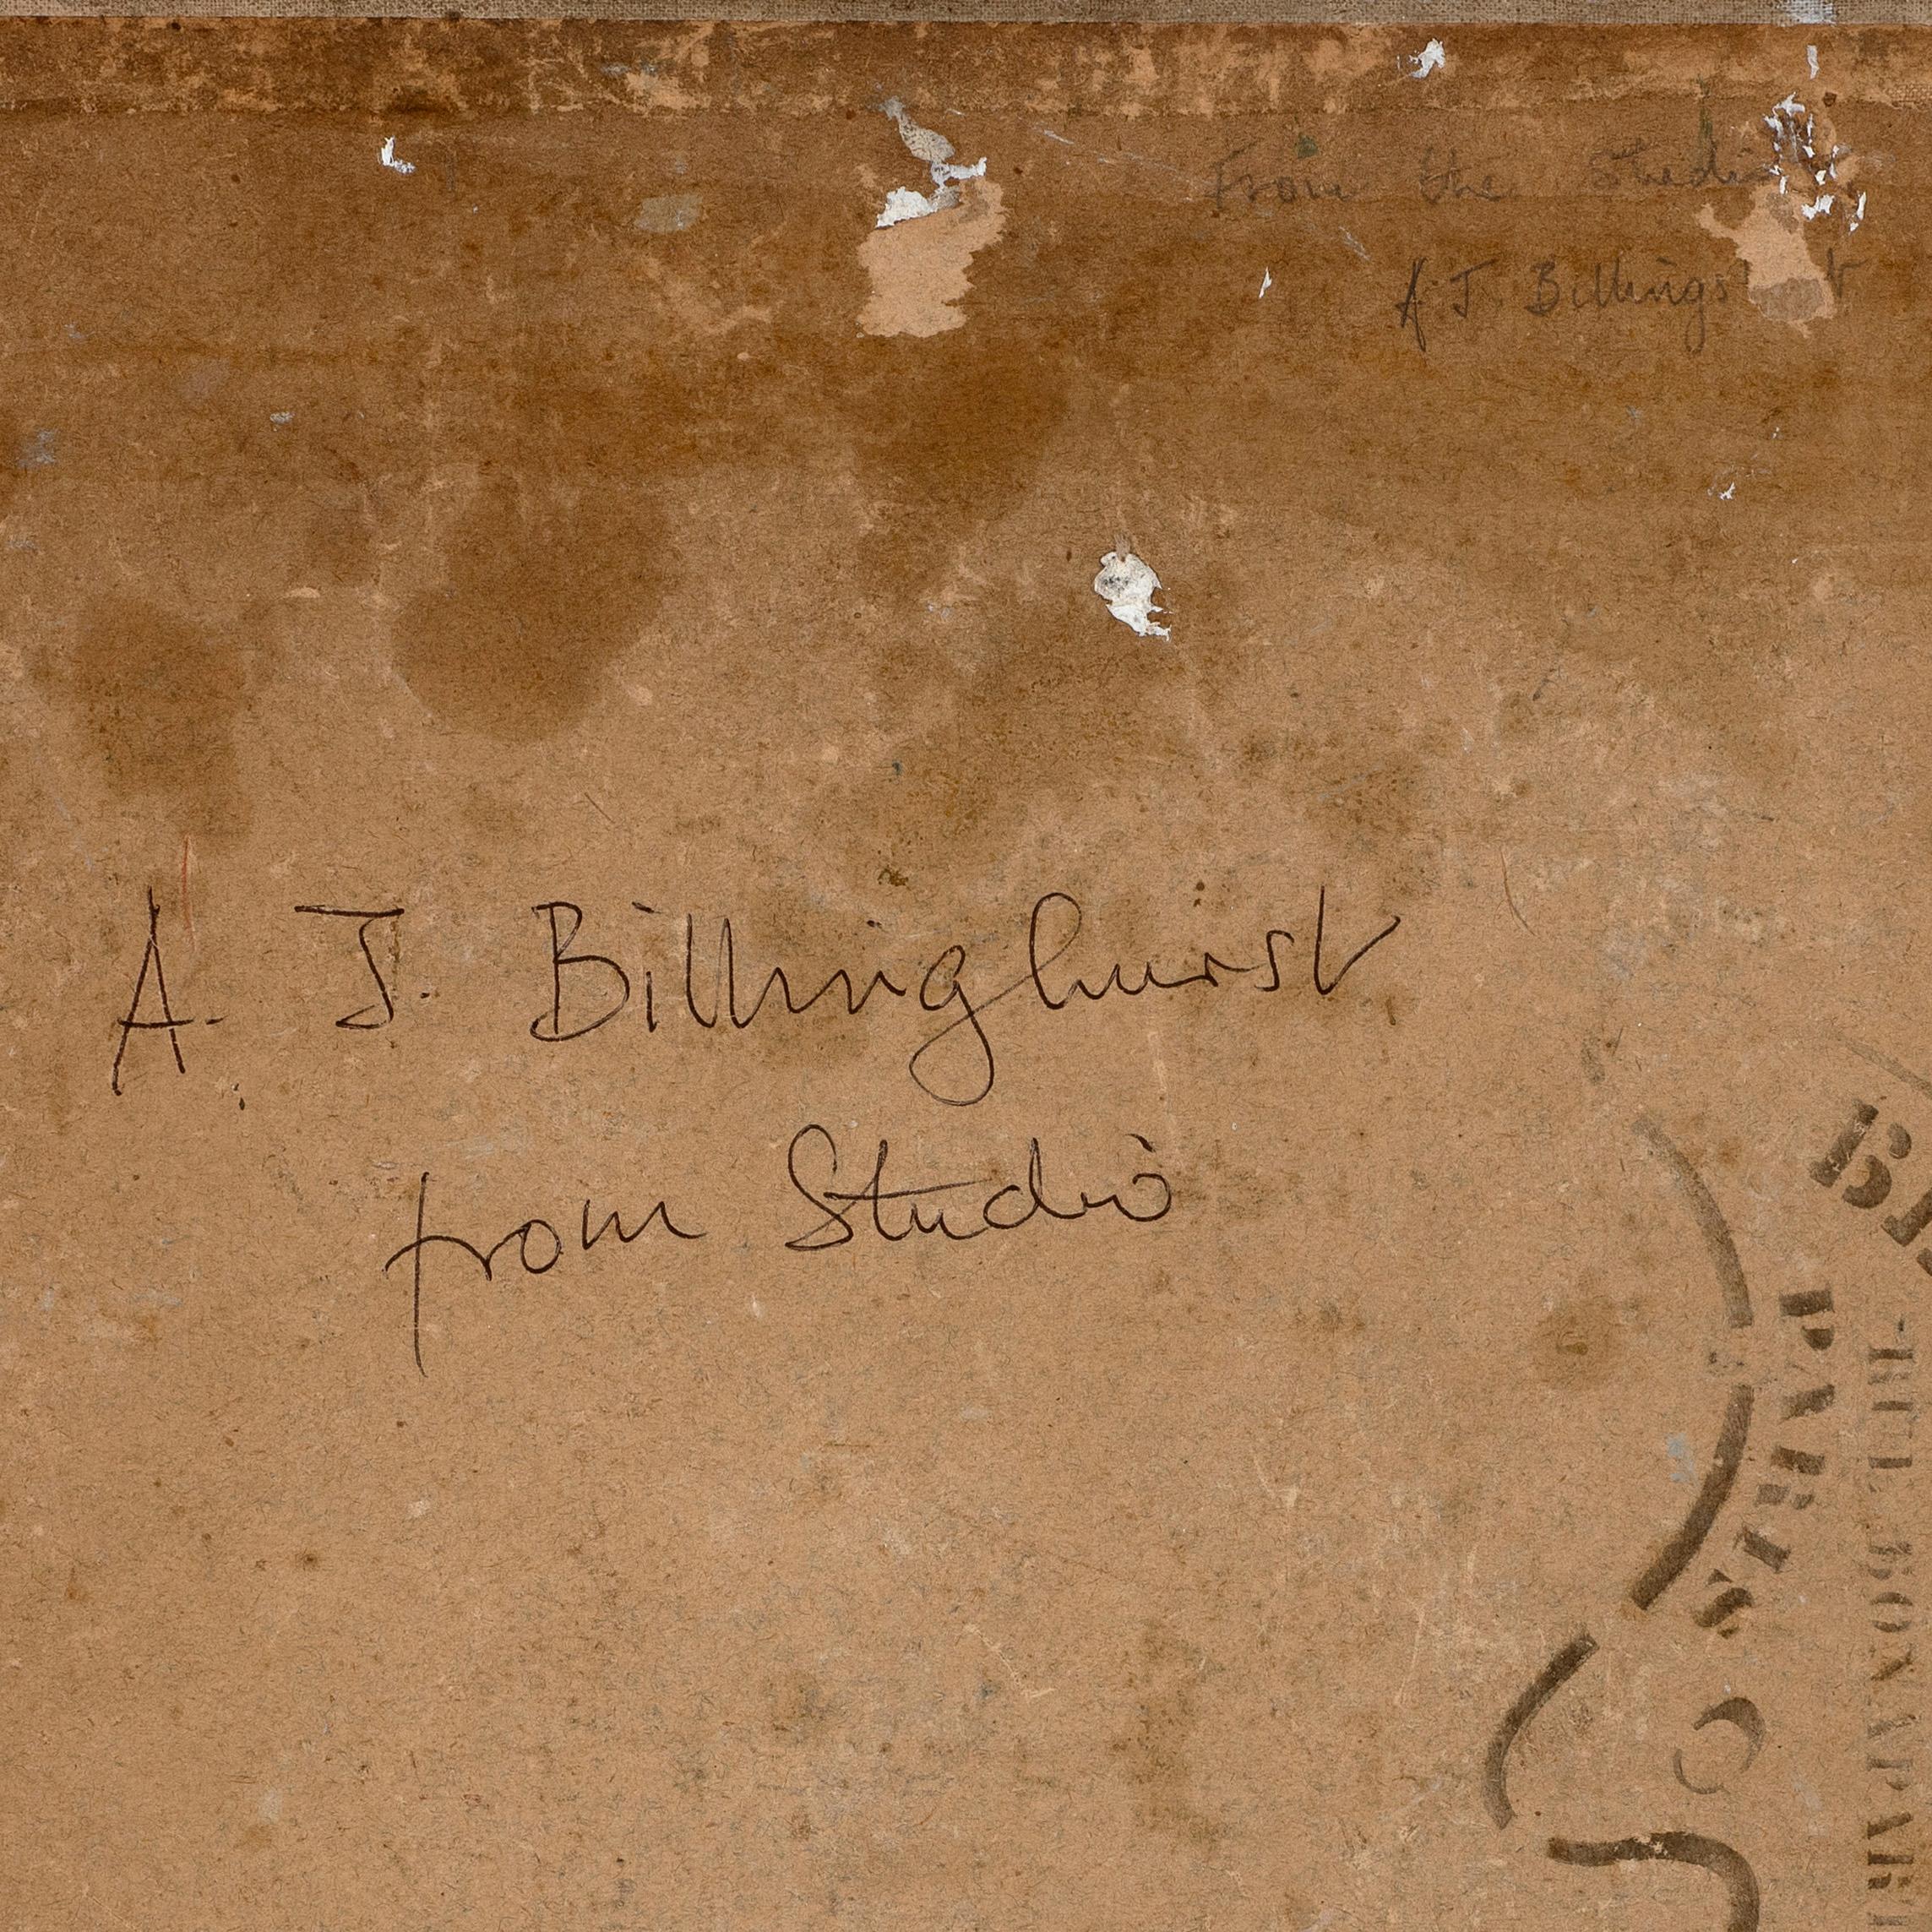 From the Studio
A. J. Billingshurst
A. J. Billinghurst
from Studio
PARIS
RUE BONAPARTE